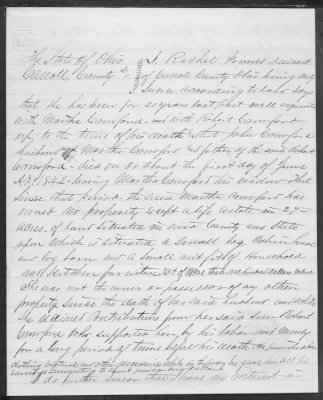 The State of Ohio
Carroll County ss
I Rachel Grimes resident
of Carroll County Ohio being duly
sworn according to law says
that she has been for 20 years last past well acquainted
with Martha Crawford and with Robert Crawford
up to the time of his death that John Crawford
husband of Martha Crawford and father of the said Robert
Crawford died on or about the first day of June
A.D. 1842 leaving Martha Crawford his widow that
since that period the said Martha Crawford has
owned no property except a life estate in 27
acres of land situated in said County and State
upon which is situated a small log Cabin house
and log barn and a small quantity of Household
and Kitchen furniture not of more than one hundred dollars value
She was not the owner or possessor of any other
property since the death of her said husband and while
she received Contributions from her said son Robert
Crawford who supported her by his labor and money
for a long period of time before his death
clothing victuals and other necessaries while in the army he gave her all his
I do further swear that I have no interest in